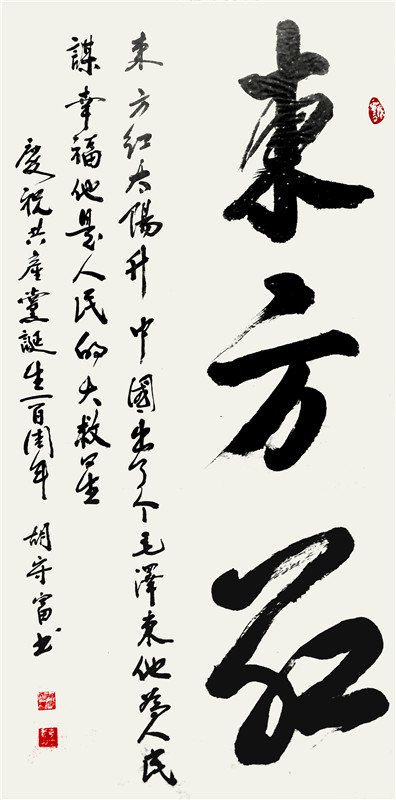 東方红
東方红太陽升中國出了个毛澤東他為人民
謀幸福他是人民的大救星
慶祝共產黨誕生一百周年 胡守富书